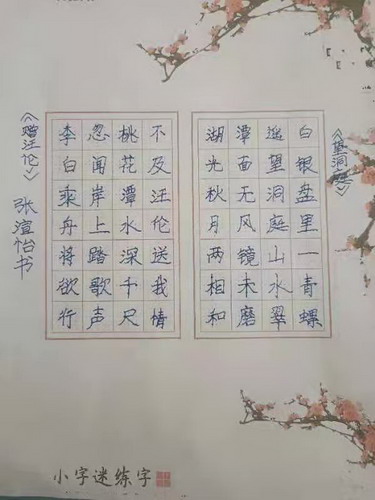 《赠汪伦》
张渲怡书
李白乘舟将欲行
忽闻岸上踏歌声
桃花潭水深千尺
不及汪伦送我情
《望洞庭》
湖光秋月两相和
潭面无风镜未磨
遥望洞庭山水翠
白银盘里一青螺
小字迷练字